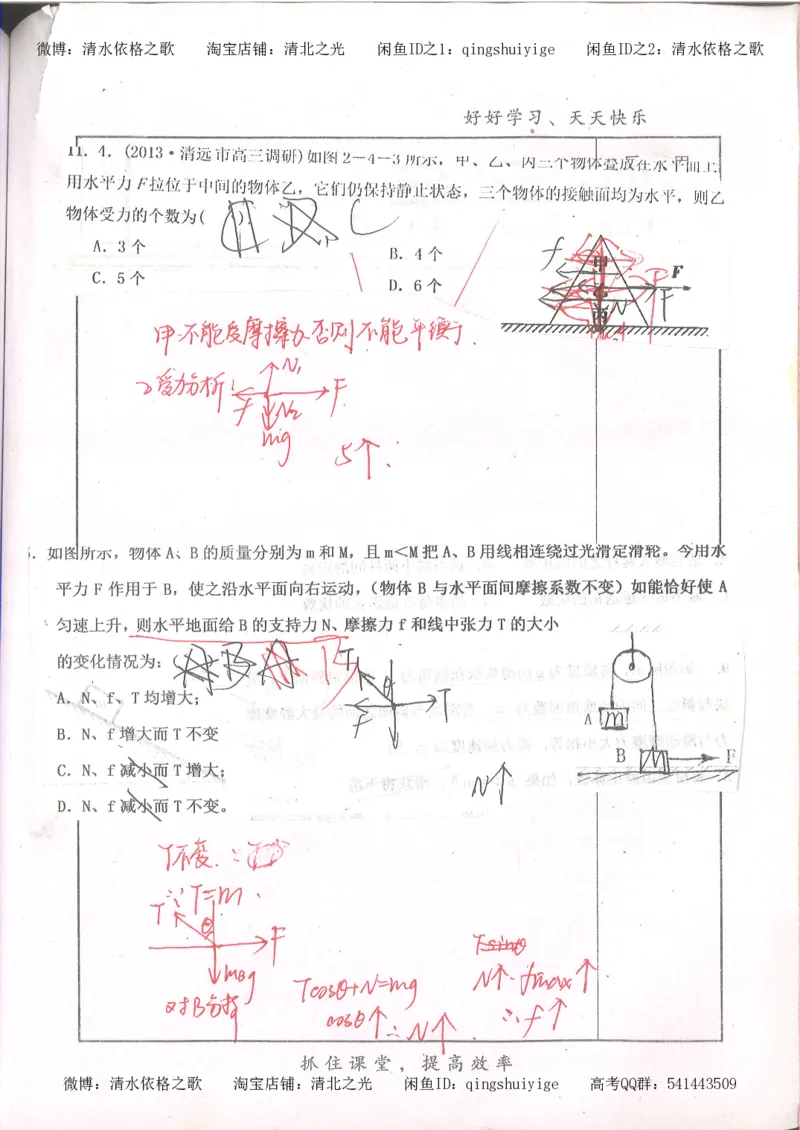 微博：清水依格之歌 淘宝店铺：清北之光 闲鱼ID之1：qingshuiyige 闲鱼ID之2：清水依格之歌
好好学习、天天快乐
11．4．(2013·清远市高三调研)如图2－4－3所示，甲、乙、丙三个物体叠放在水平面上，
用水平力F拉位于中间的物体乙，它们仍保持静止状态，三个物体的接触面均为水平，则乙
物体受力的个数为( ) C
A．3个 B．4个
C．5个 D．6个
f 甲 F
F
N
丙
甲:不能受摩擦力.否则不能平衡了.
乙受力分析: N₁
f F
N₂
mg
5个.
．如图所示，物体A、B的质量分别为m和M，且m＜M把A、B用线相连绕过光滑定滑轮。今用水
平力F作用于B，使之沿水平面向右运动，（物体B与水平面间摩擦系数不变）如能恰好使A
匀速上升，则水平地面给B的支持力N、摩擦力f和线中张力T的大小
的变化情况为：
T θ
f T
A．N、f、T均增大；
B．N、f增大而T不变
C．N、f减小而T增大；
D．N、f减小而T不变。
A m
B M F
N↑
T不变.
∵T=m.
T θ F
mBg
对B分析
Tcosθ+N=mg
cosθ↑∴N↑.
Tsinθ
N↑.fmax↑
∴f↑
抓住课堂，提高效率
微博：清水依格之歌 淘宝店铺：清北之光 闲鱼ID：qingshuiyige 高考QQ群：541443509